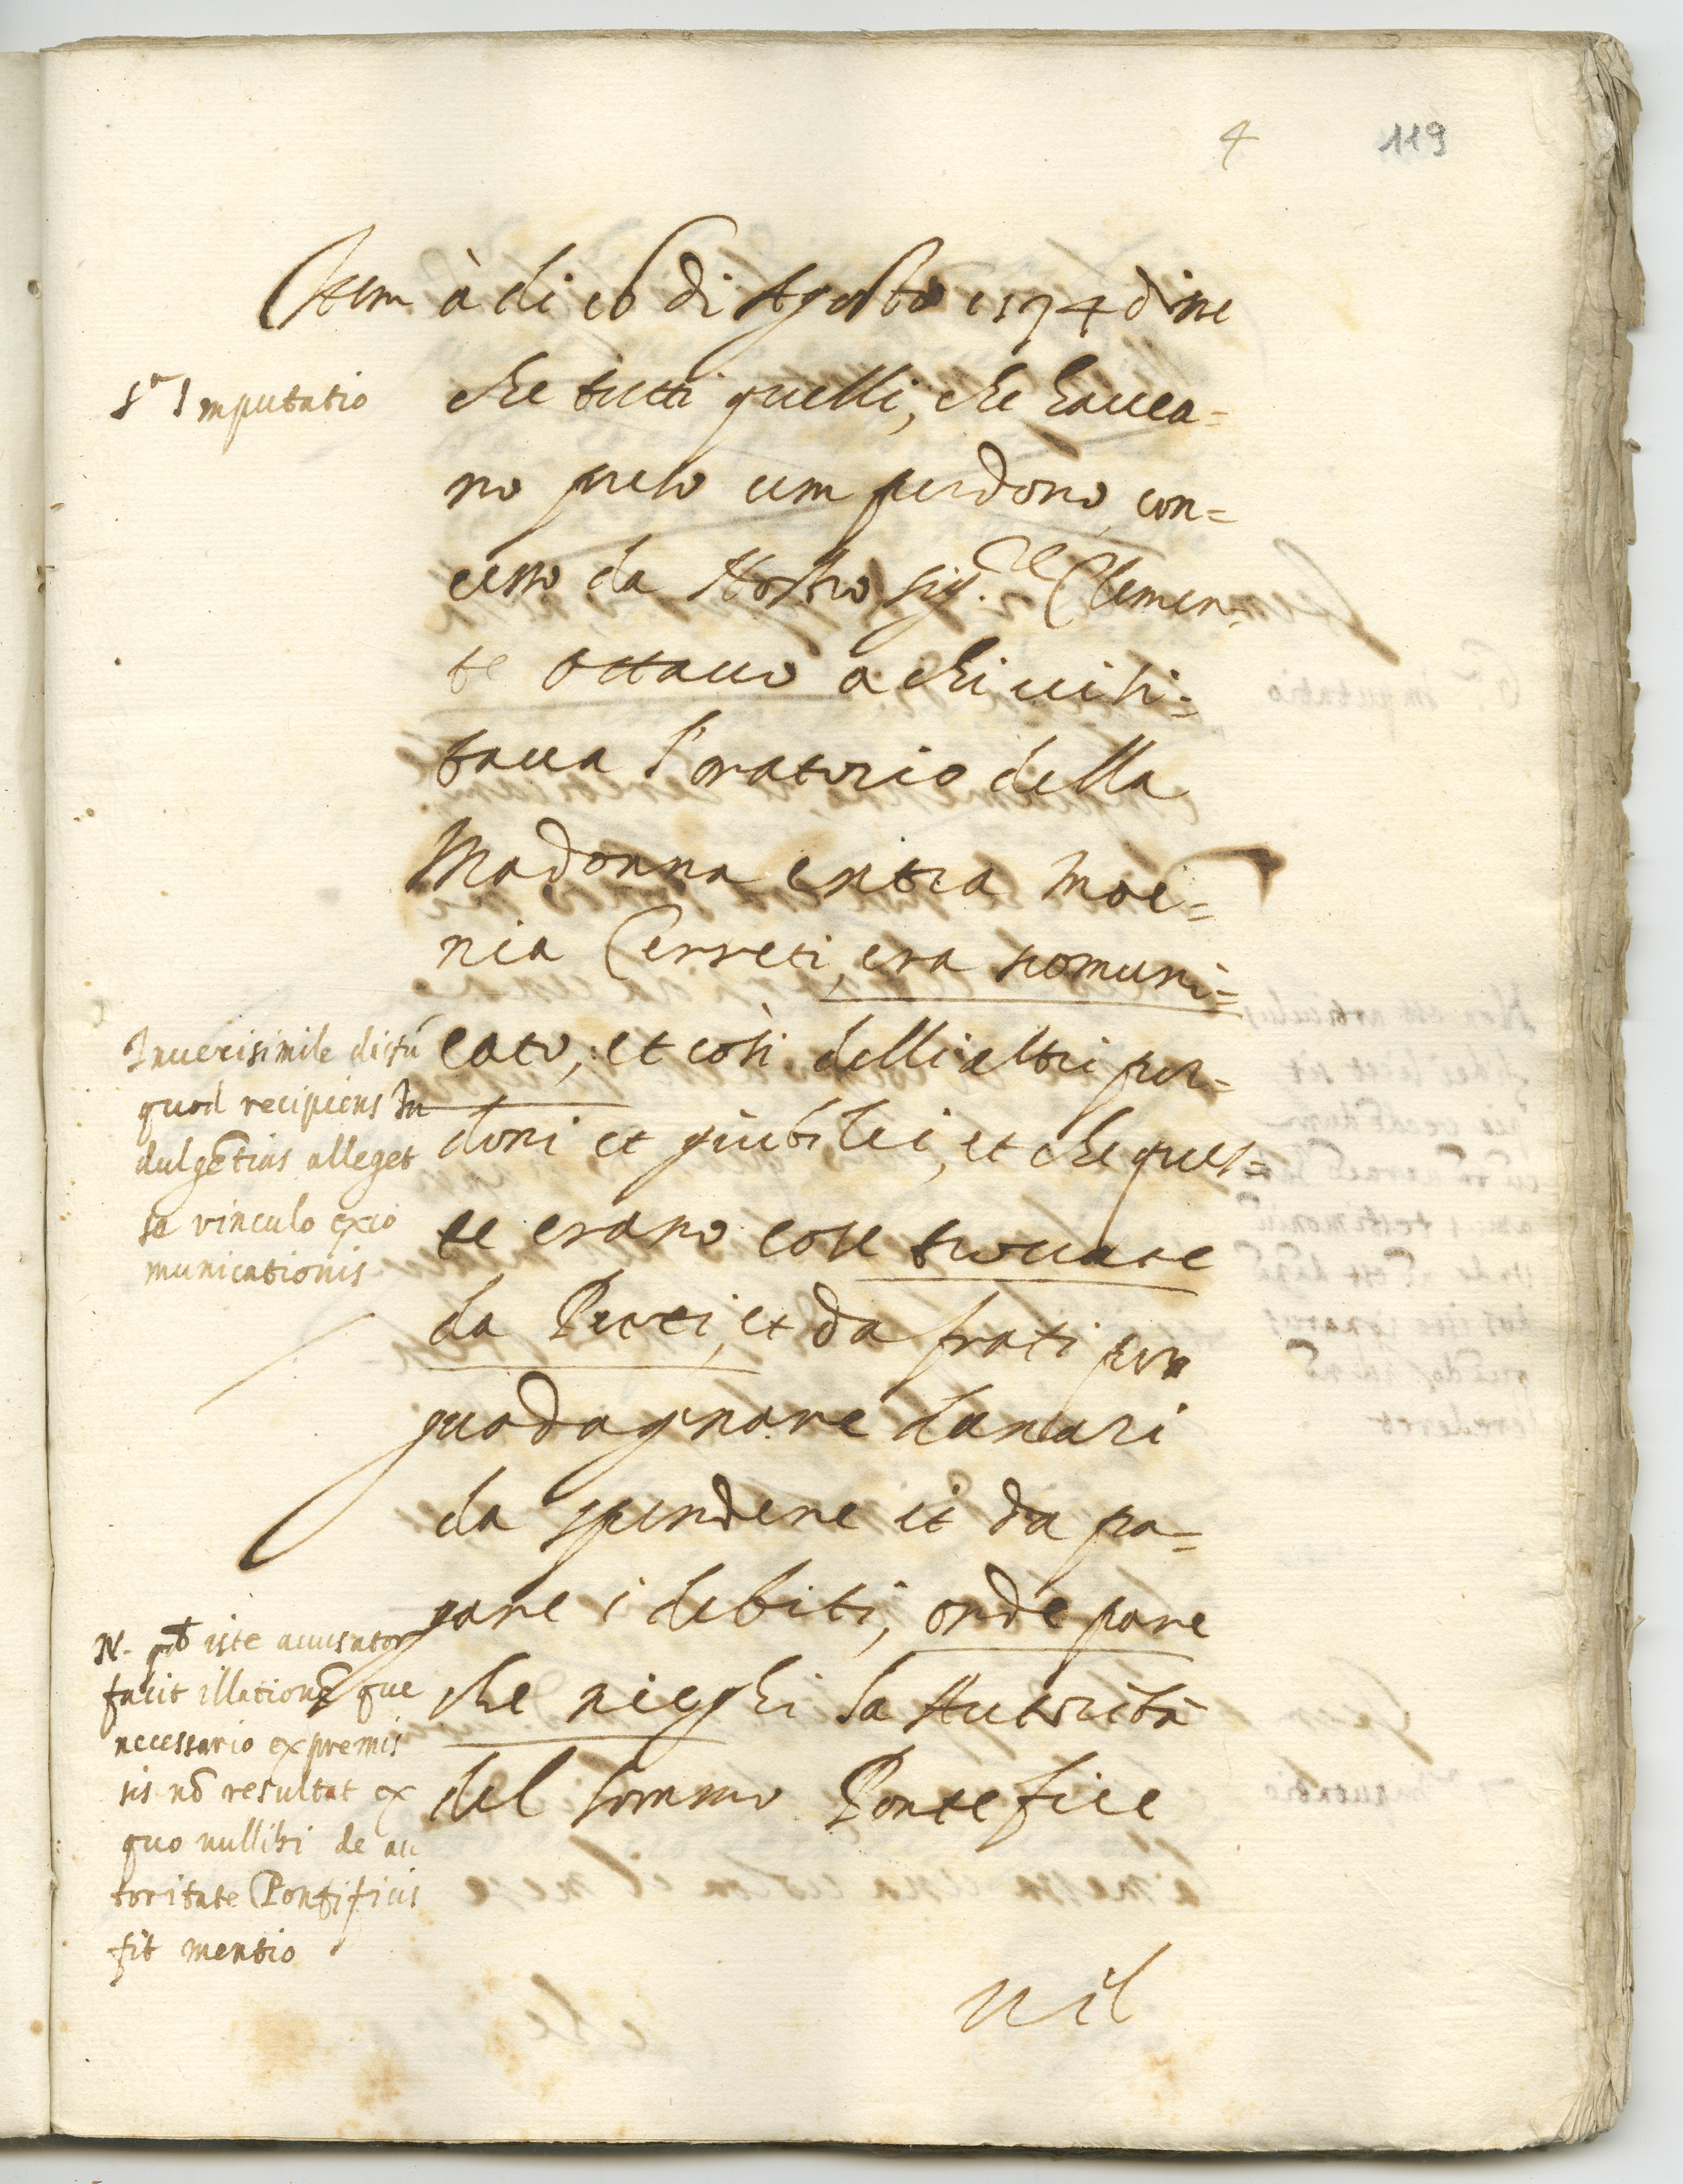 4 119
Item à di 16 di Agosto 1594 disse
5.ª Imputatio
che tutti quelli, che havea=
no preso um perdono con=
cesso da Nostro Sig.re Clemen=
te ottavo a chi visi=
tava l'oratorio della
Madonna intra moe=
nia Cerreti, era scomuni=
cato, et così delli altri per=
doni et giubilei, et che ques=
te erano cose trovate
da Preti, et da frati per
guadagnare danari
da spendere et da pa=
gare i debiti, onde pare
che nieghi la Autorità
del sommo Pontefice
Inverisimile dictũ
quod recipiens In
dulgẽtias alleget
se vinculo exco
municationis
N. qđ iste accusator
facit illationẽ que
necessario ex premis
sis nõ resultat ex
quo nullibi de au
toritate Pontificis
fit mentio
nil